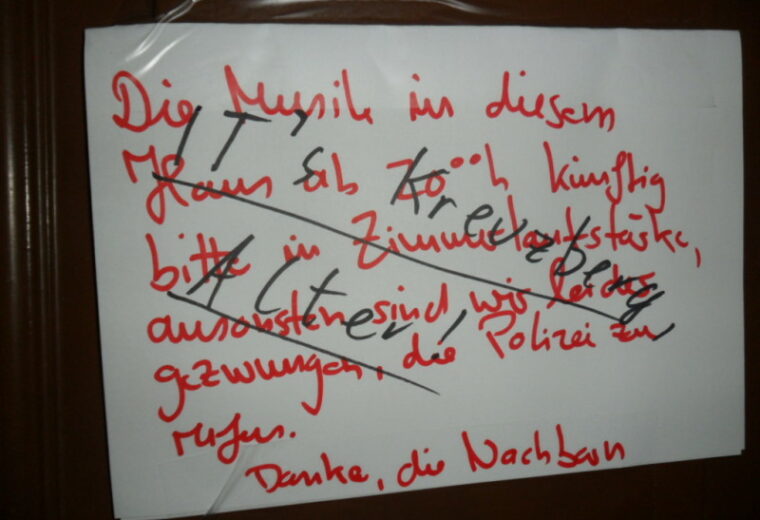 Die Musik in diesem
Haus ab 20°°h künftig
bitte in Zimmerlautstärke,
ansonsten sind wir leider
gezwungen, die Polizei zu
rufen.
Danke, die Nachbarn
IT's
Kreuzberg
Alter!